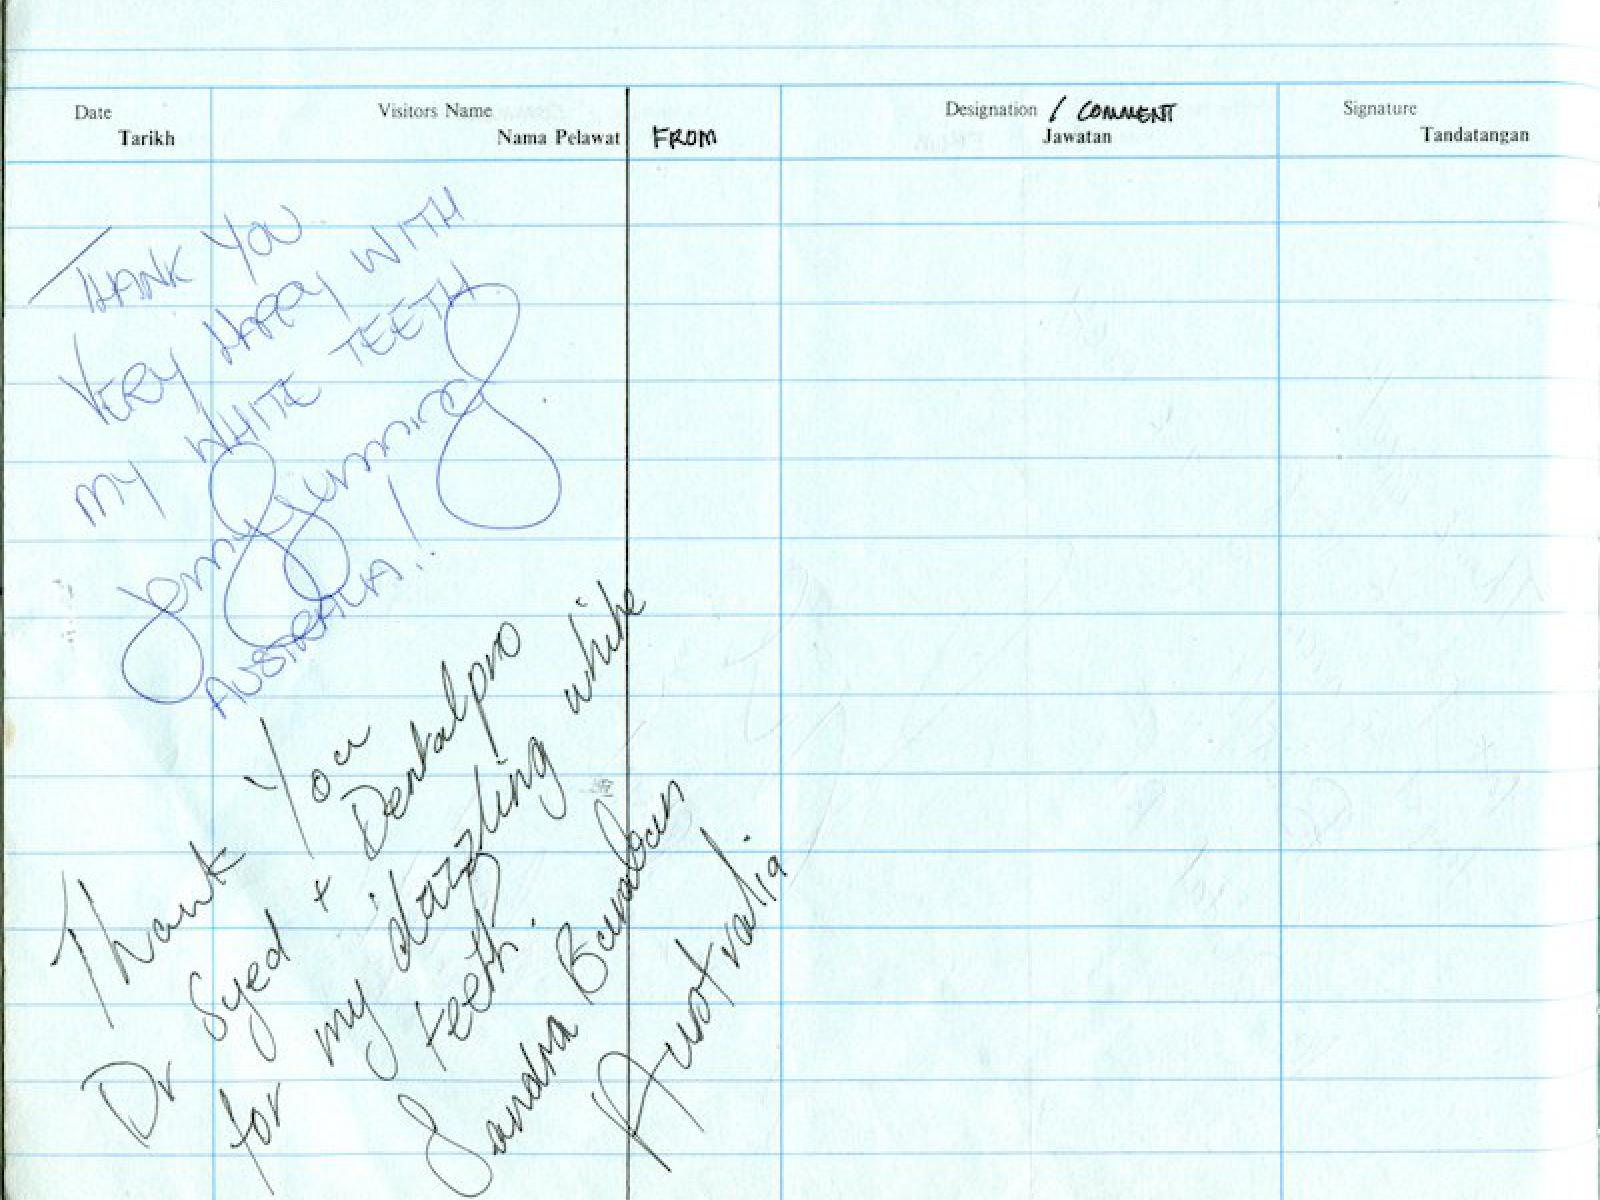 Date Visitors Name Designation / COMMENT Signature
Tarikh Nama Pelawat FROM Jawatan Tandatangan
THANK YOU
VERY HAPPY WITH
MY WHITE TEETH
AUSTRALIA!
Thank You
Dr Syed + Dentalpro
for my dazzling white
teeth.
Sandra
Australia